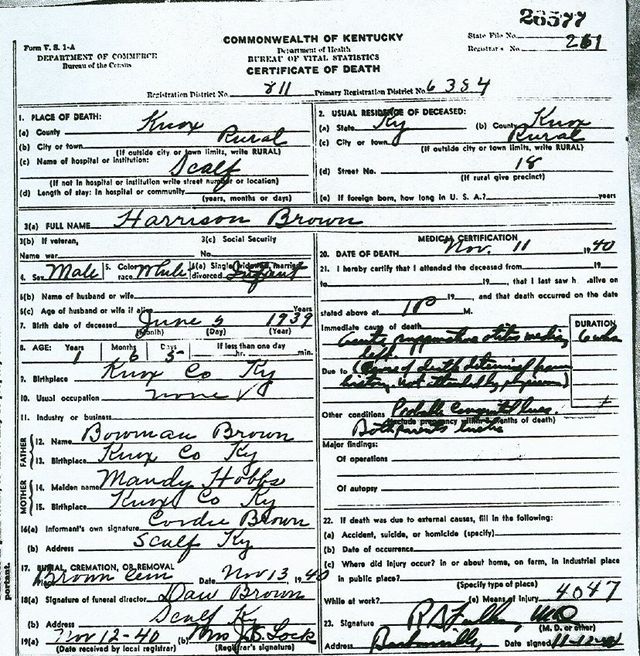 26577
Form V. S. 1-A
DEPARTMENT OF COMMERCE
Bureau of the Census
COMMONWEALTH OF KENTUCKY
Department of Health
BUREAU OF VITAL STATISTICS
CERTIFICATE OF DEATH
State File No.
Registrar's No. 261
Registration District No. 811 Primary Registration District No. 6384
1. PLACE OF DEATH:
(a) County Knox
(b) City or town Rural
(If outside city or town limits, write RURAL)
(c) Name of hospital or institution: Scalf
(If not in hospital or institution write street number or location)
(d) Length of stay: In hospital or community
(years, months or days)
2. USUAL RESIDENCE OF DECEASED:
(a) State Ky (b) County Knox
(c) City or town Rural
(If outside city or town limits, write RURAL)
(d) Street No. 18
(If rural give precinct)
(e) If foreign born, how long in U. S. A.? years
3(a) FULL NAME Harrison Brown
3(b) If veteran,
Name war
3(c) Social Security
No.
4. Sex Male 5. Color or race White 6(a) Single, widowed, married, divorced Infant
6(b) Name of husband or wife
6(c) Age of husband or wife if alive Years
7. Birth date of deceased June 5 1939
(Month) (Day) (Year)
8. AGE: Years Months Days If less than one day
1 6 5 hr. min.
9. Birthplace Knox Co Ky
10. Usual occupation none
11. Industry or business
FATHER
12. Name Bowman Brown
13. Birthplace Knox Co Ky
MOTHER
14. Maiden name Mandy Hobbs
15. Birthplace Knox Co Ky
16(a) Informant's own signature Cordie Brown
(b) Address Scalf Ky
17. BURIAL, CREMATION, OR REMOVAL
Brown Cem Date Nov 13, 1940
18(a) Signature of funeral director Daw Brown
(b) Address Scalf Ky
19(a) Nov 12-40 (b) Mrs J.B. Lock
(Date received by local registrar) (Registrar's signature)
MEDICAL CERTIFICATION
20. DATE OF DEATH Nov. 11 1940
21. I hereby certify that I attended the deceased from 19
to 19, that I last saw h alive on
19, and that death occurred on the date
stated above at M.
Immediate cause of death DURATION
Acute suppurative otitis media, 6 wks
left
Due to (Cause of death determined from
history, not attended by physician)
Other conditions Probable Congenital lues.
(Include pregnancy within 3 months of death)
Both parents luetic
Major findings:
Of operations
Of autopsy
22. If death was due to external causes, fill in the following:
(a) Accident, suicide, or homicide (specify)
(b) Date of occurrence
(c) Where did injury occur? in or about home, on farm, in industrial place
in public place?
(Specify type of place)
While at work? (e) Means of injury 4047
23. Signature MD
(M. D. or other)
Address Barbourville, Date signed 11-12-40
portant.